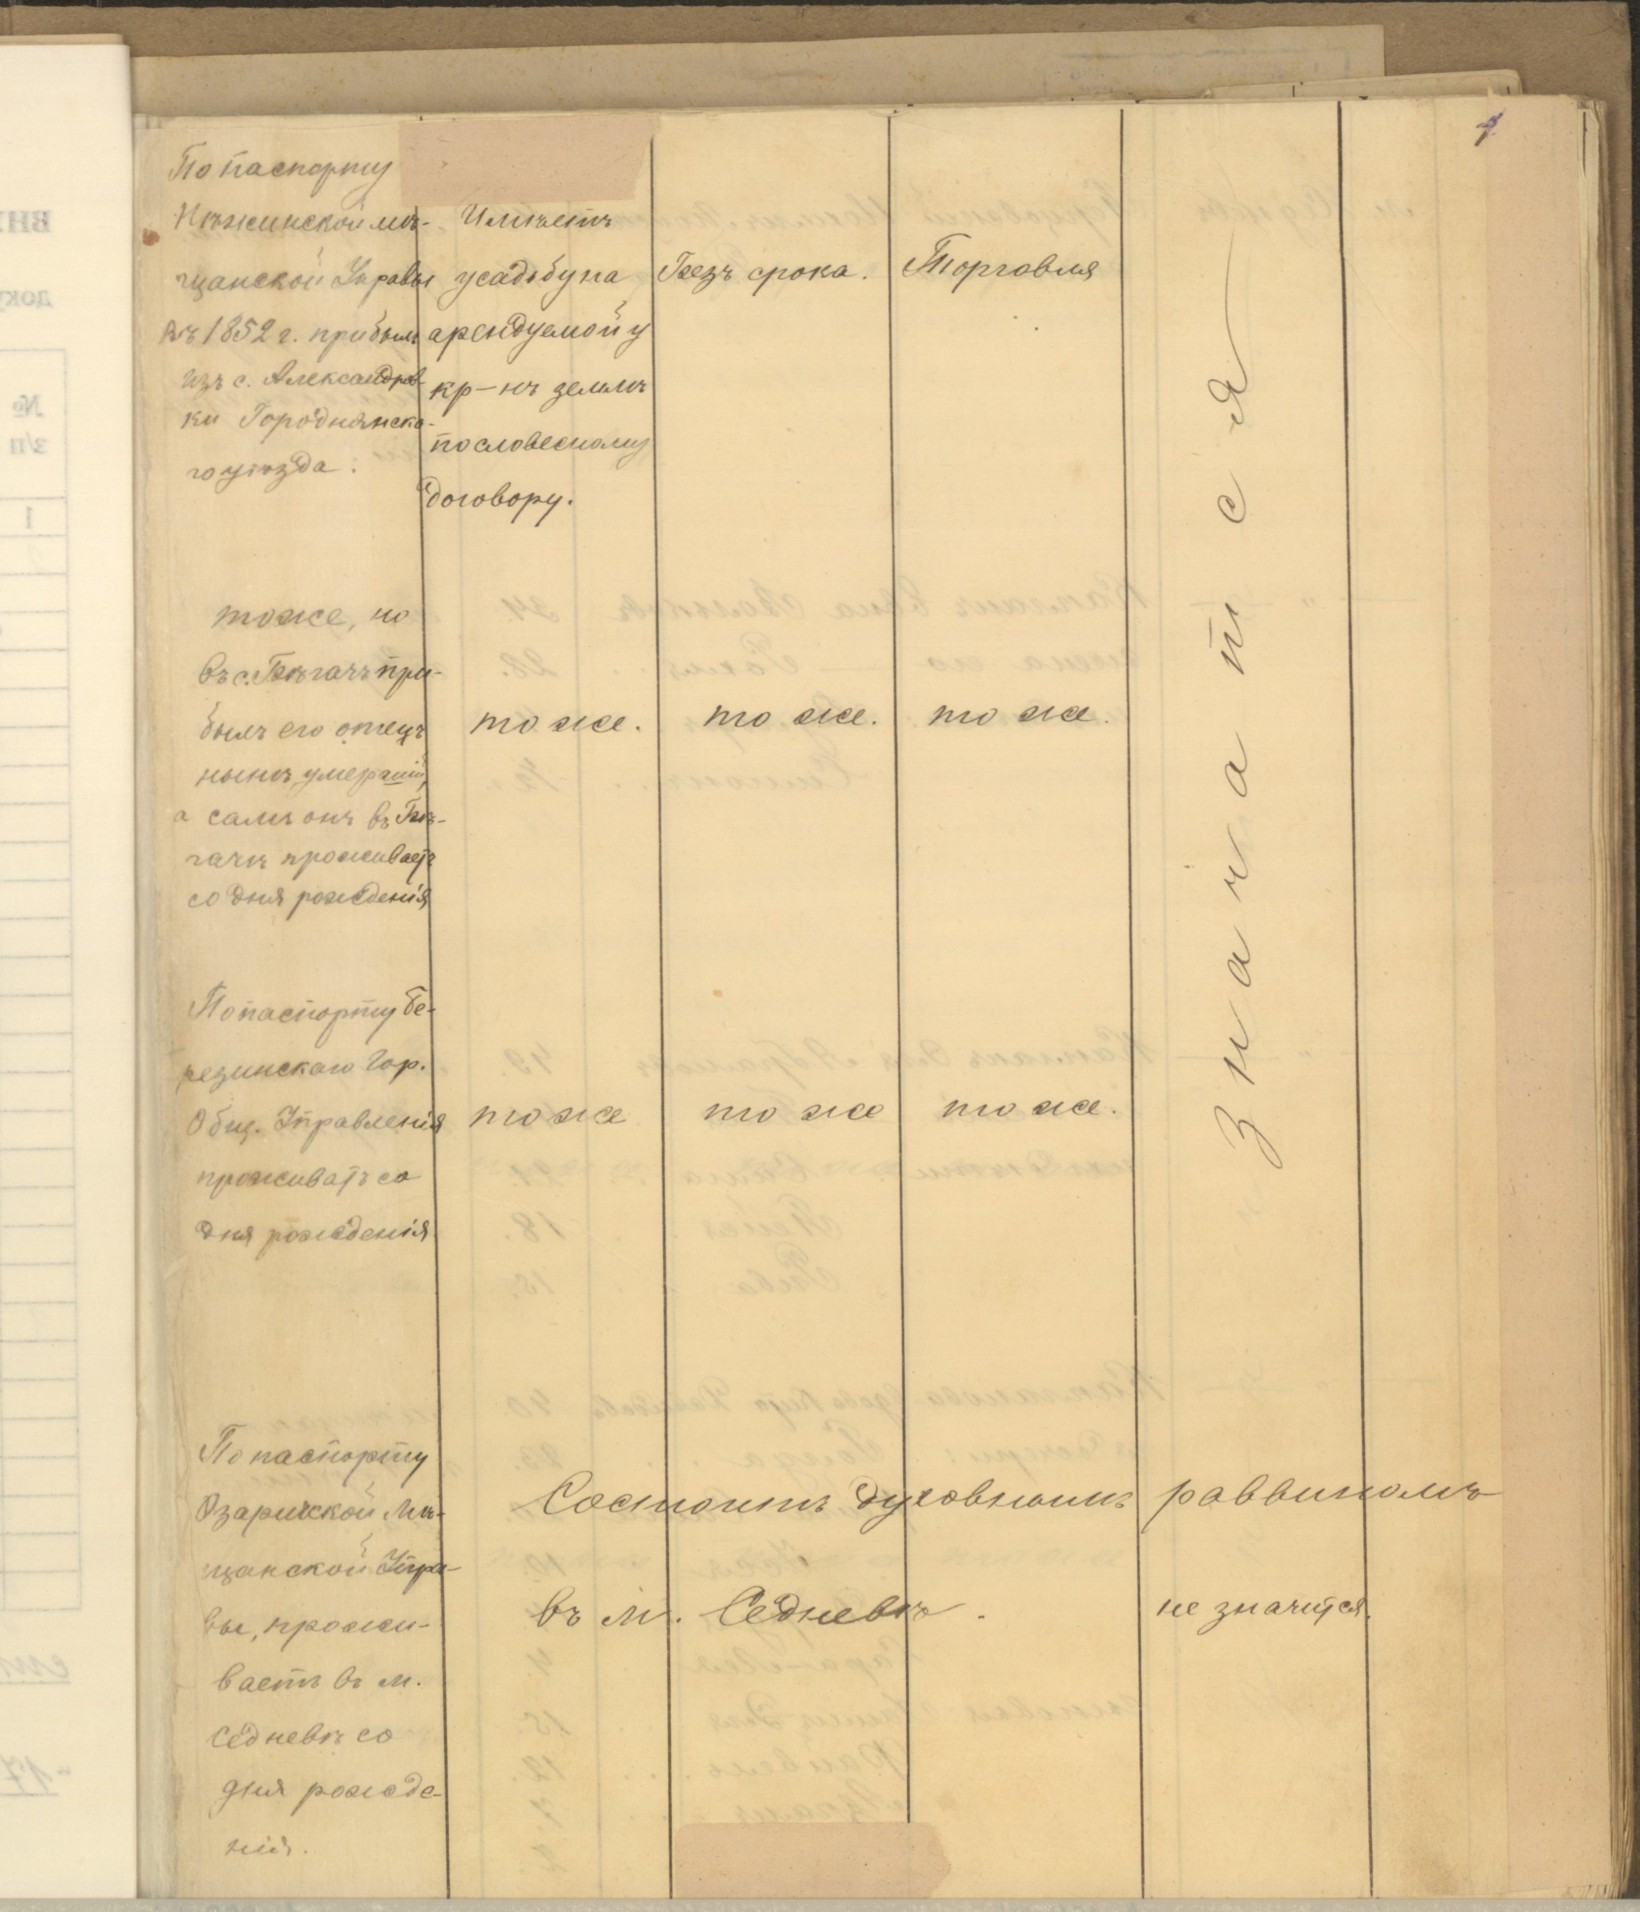 По паспорту
Нѣжинской мѣ-
щанской Управы
въ 1852 г. прибылъ
изъ с. Александров-
ки Городнянска-
го уѣзда.
Имѣетъ
усадьбу на
арендуемой у
кр-нъ землѣ
по словесному
договору.
Безъ срока.
Торговля
тоже, но
въ с. Бѣгачъ при-
былъ его отецъ
нынѣ умершій,
а самъ онъ въ Бѣ-
гачѣ проживаетъ
со дня рожденія
тоже.
тоже.
тоже.
По паспорту Бе-
резинскаго Гор.
Общ. Управленія
проживаетъ со
дня рожденія
тоже
тоже
тоже.
значатся
По паспорту
Озаричской Мѣ-
щанской Упра-
вы, прожи-
ваетъ въ м.
Седневѣ со
дня рожде-
нія.
Состоитъ духовнымъ раввиномъ
въ м. Седневѣ.
не значится.